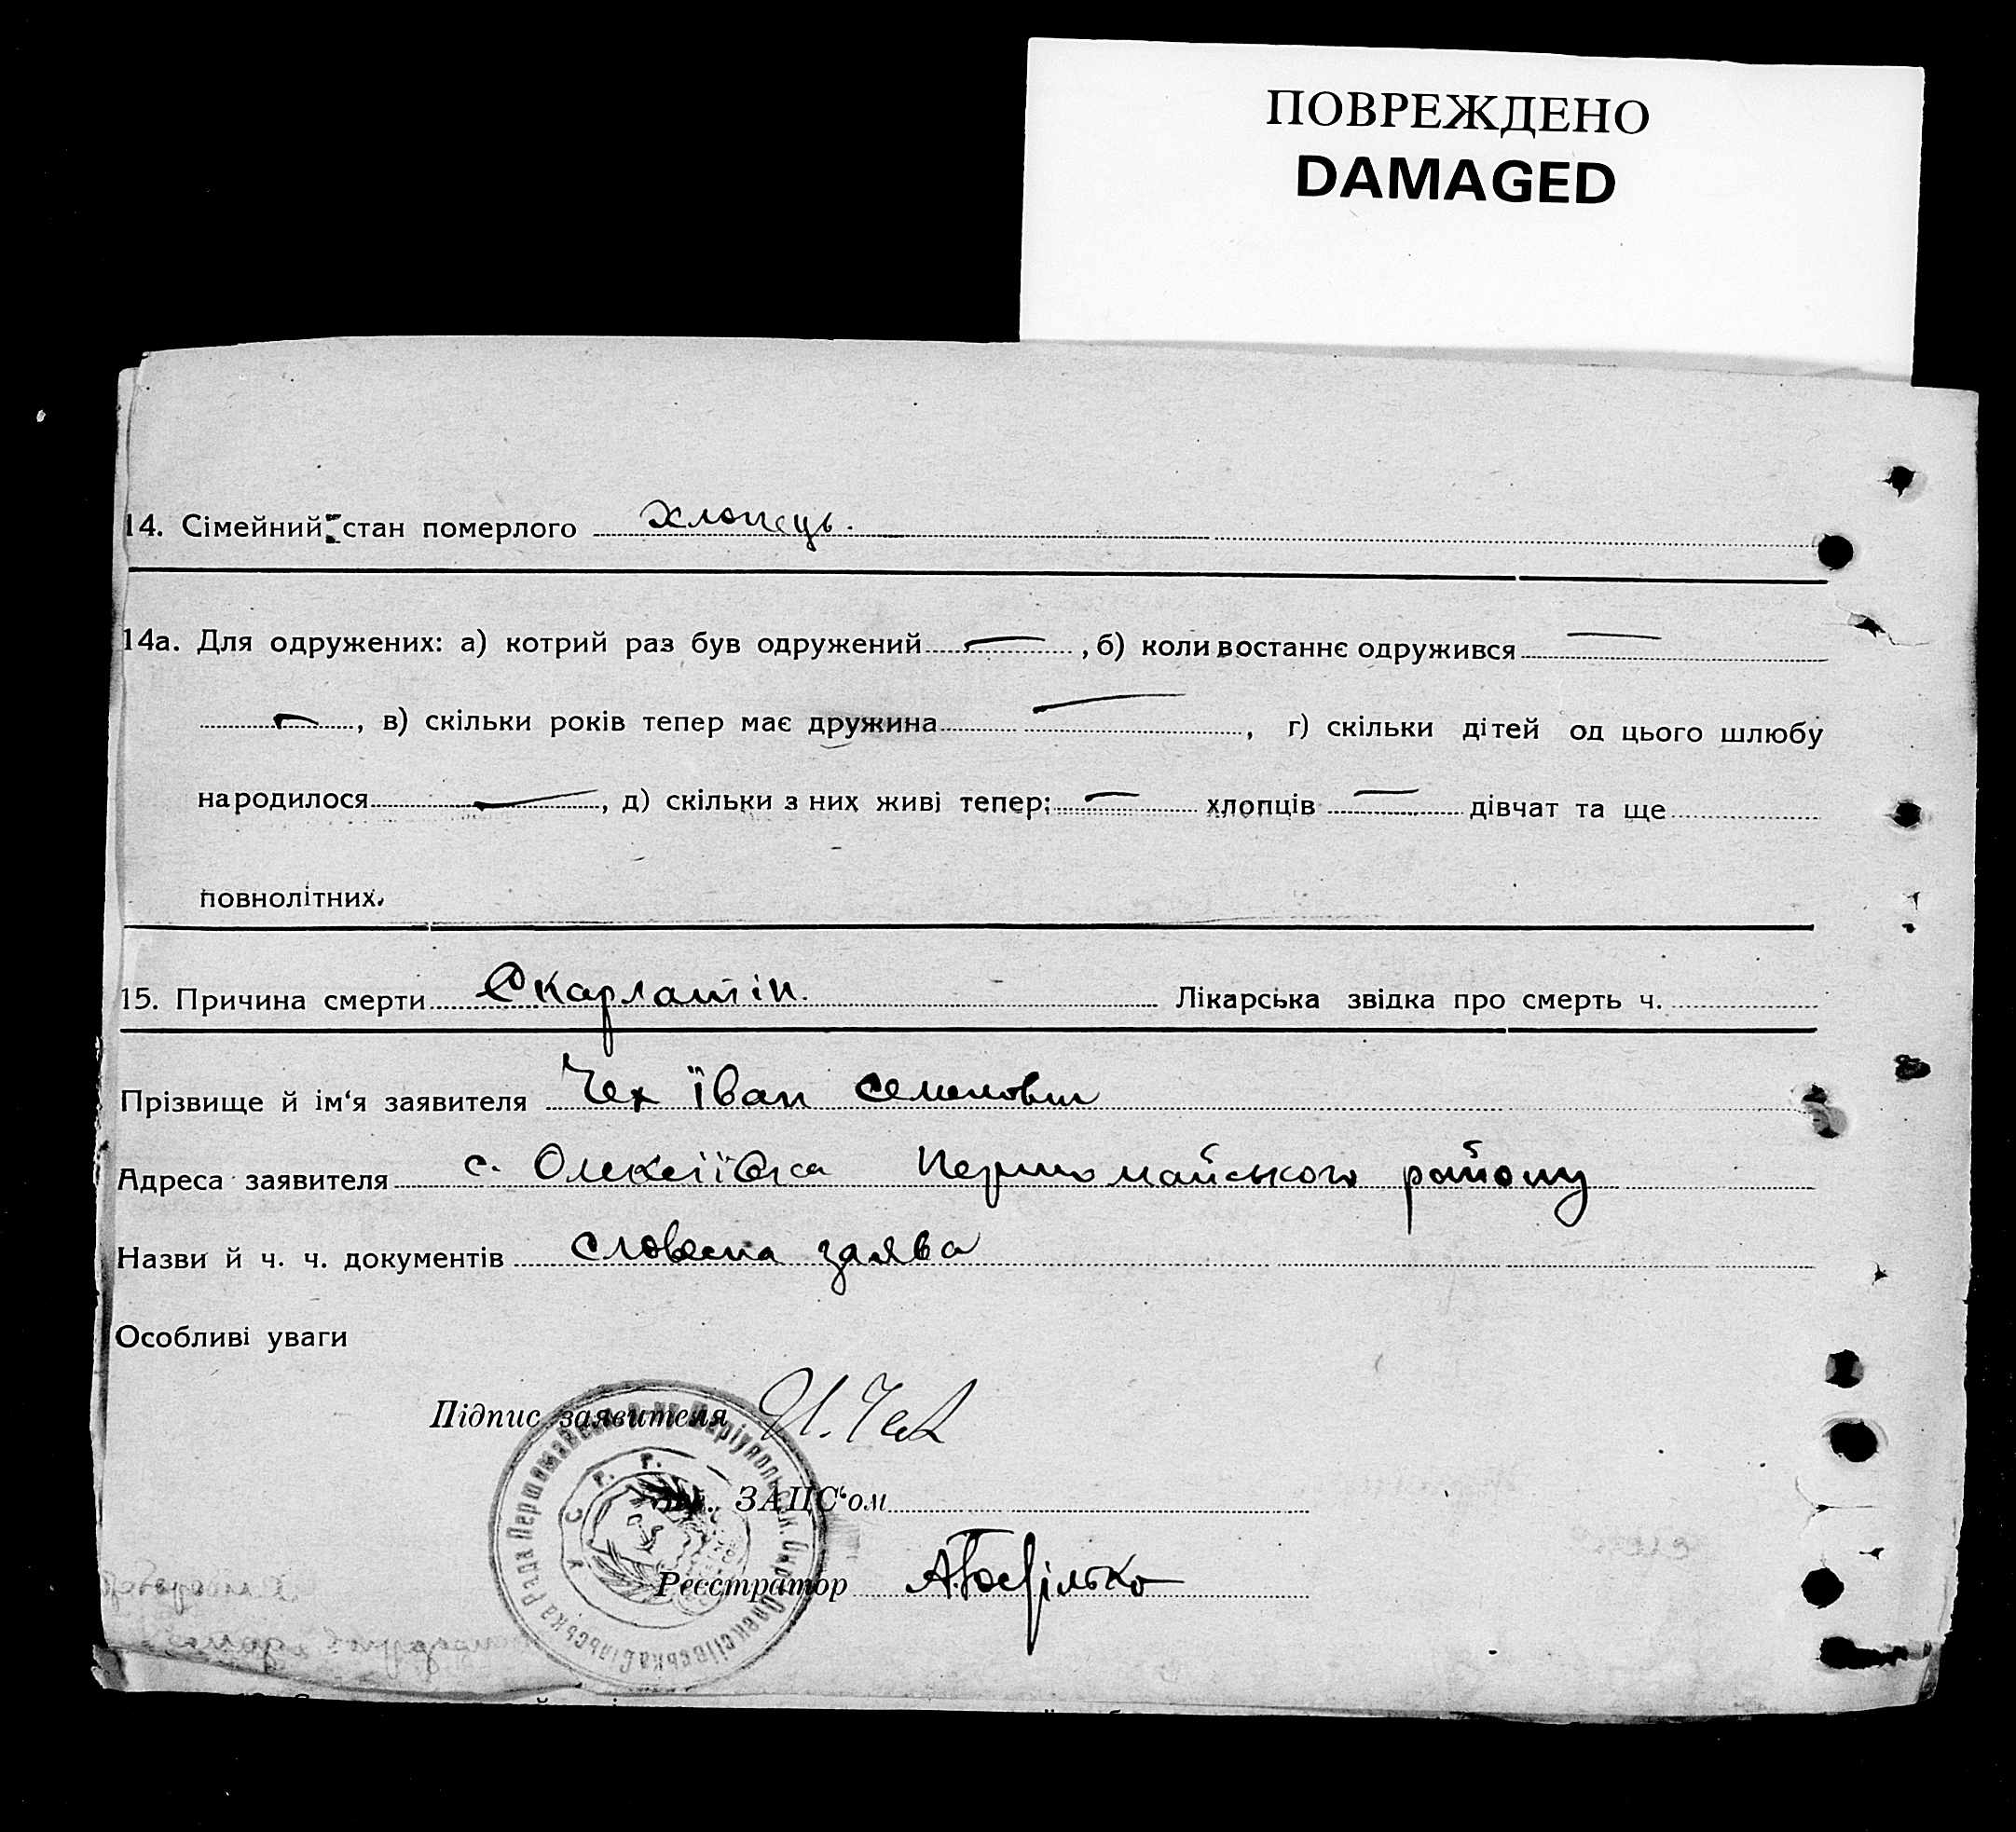 ПОВРЕЖДЕНО
DAMAGED
14. Сімейний стан померлого хлопець.
14а. Для одружених: а) котрий раз був одружений — , б) коли востаннє одружився —
— , в) скільки років тепер має дружина — , г) скільки дітей од цього шлюбу
народилося — , д) скільки з них живі тепер: — хлопців — дівчат та ще
повнолітних.
15. Причина смерти Скарлатін. Лікарська звідка про смерть ч.
Прізвище й ім‘я заявителя Чех Їван Семенович
Адреса заявителя с. Олексіївка Першомайського району
Назви й ч. ч. документів словесна заява
Особливі уваги
Підпис заявителя И. Чех
ЗАПС‘ом
Реєстратор